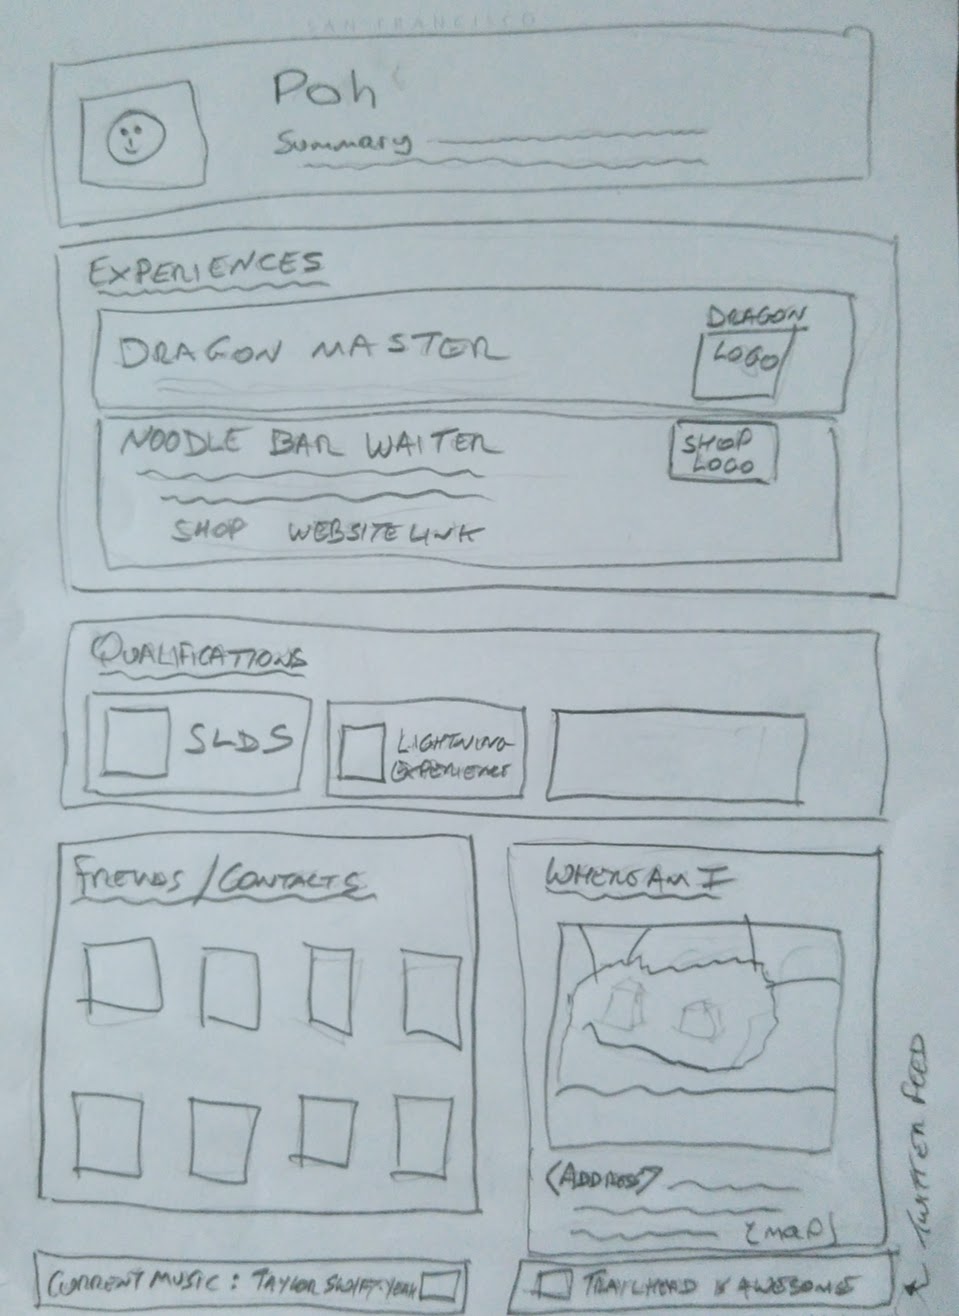 SAN FRANCISCO
Poh
Summary
EXPERIENCES
DRAGON MASTER
DRAGON
LOGO
NOODLE BAR WAITER
SHOP
LOGO
SHOP WEBSITE LINK
QUALIFICATIONS
SLDS
LIGHTNING
EXPERIENCE
FRIENDS / CONTACTS
WHERE AM I
<ADDRESS>
[MAP]
CURRENT MUSIC : TAYLOR SWIFT-YEAH
TRAILHEAD IS AWESOME
← TWITTER FEED